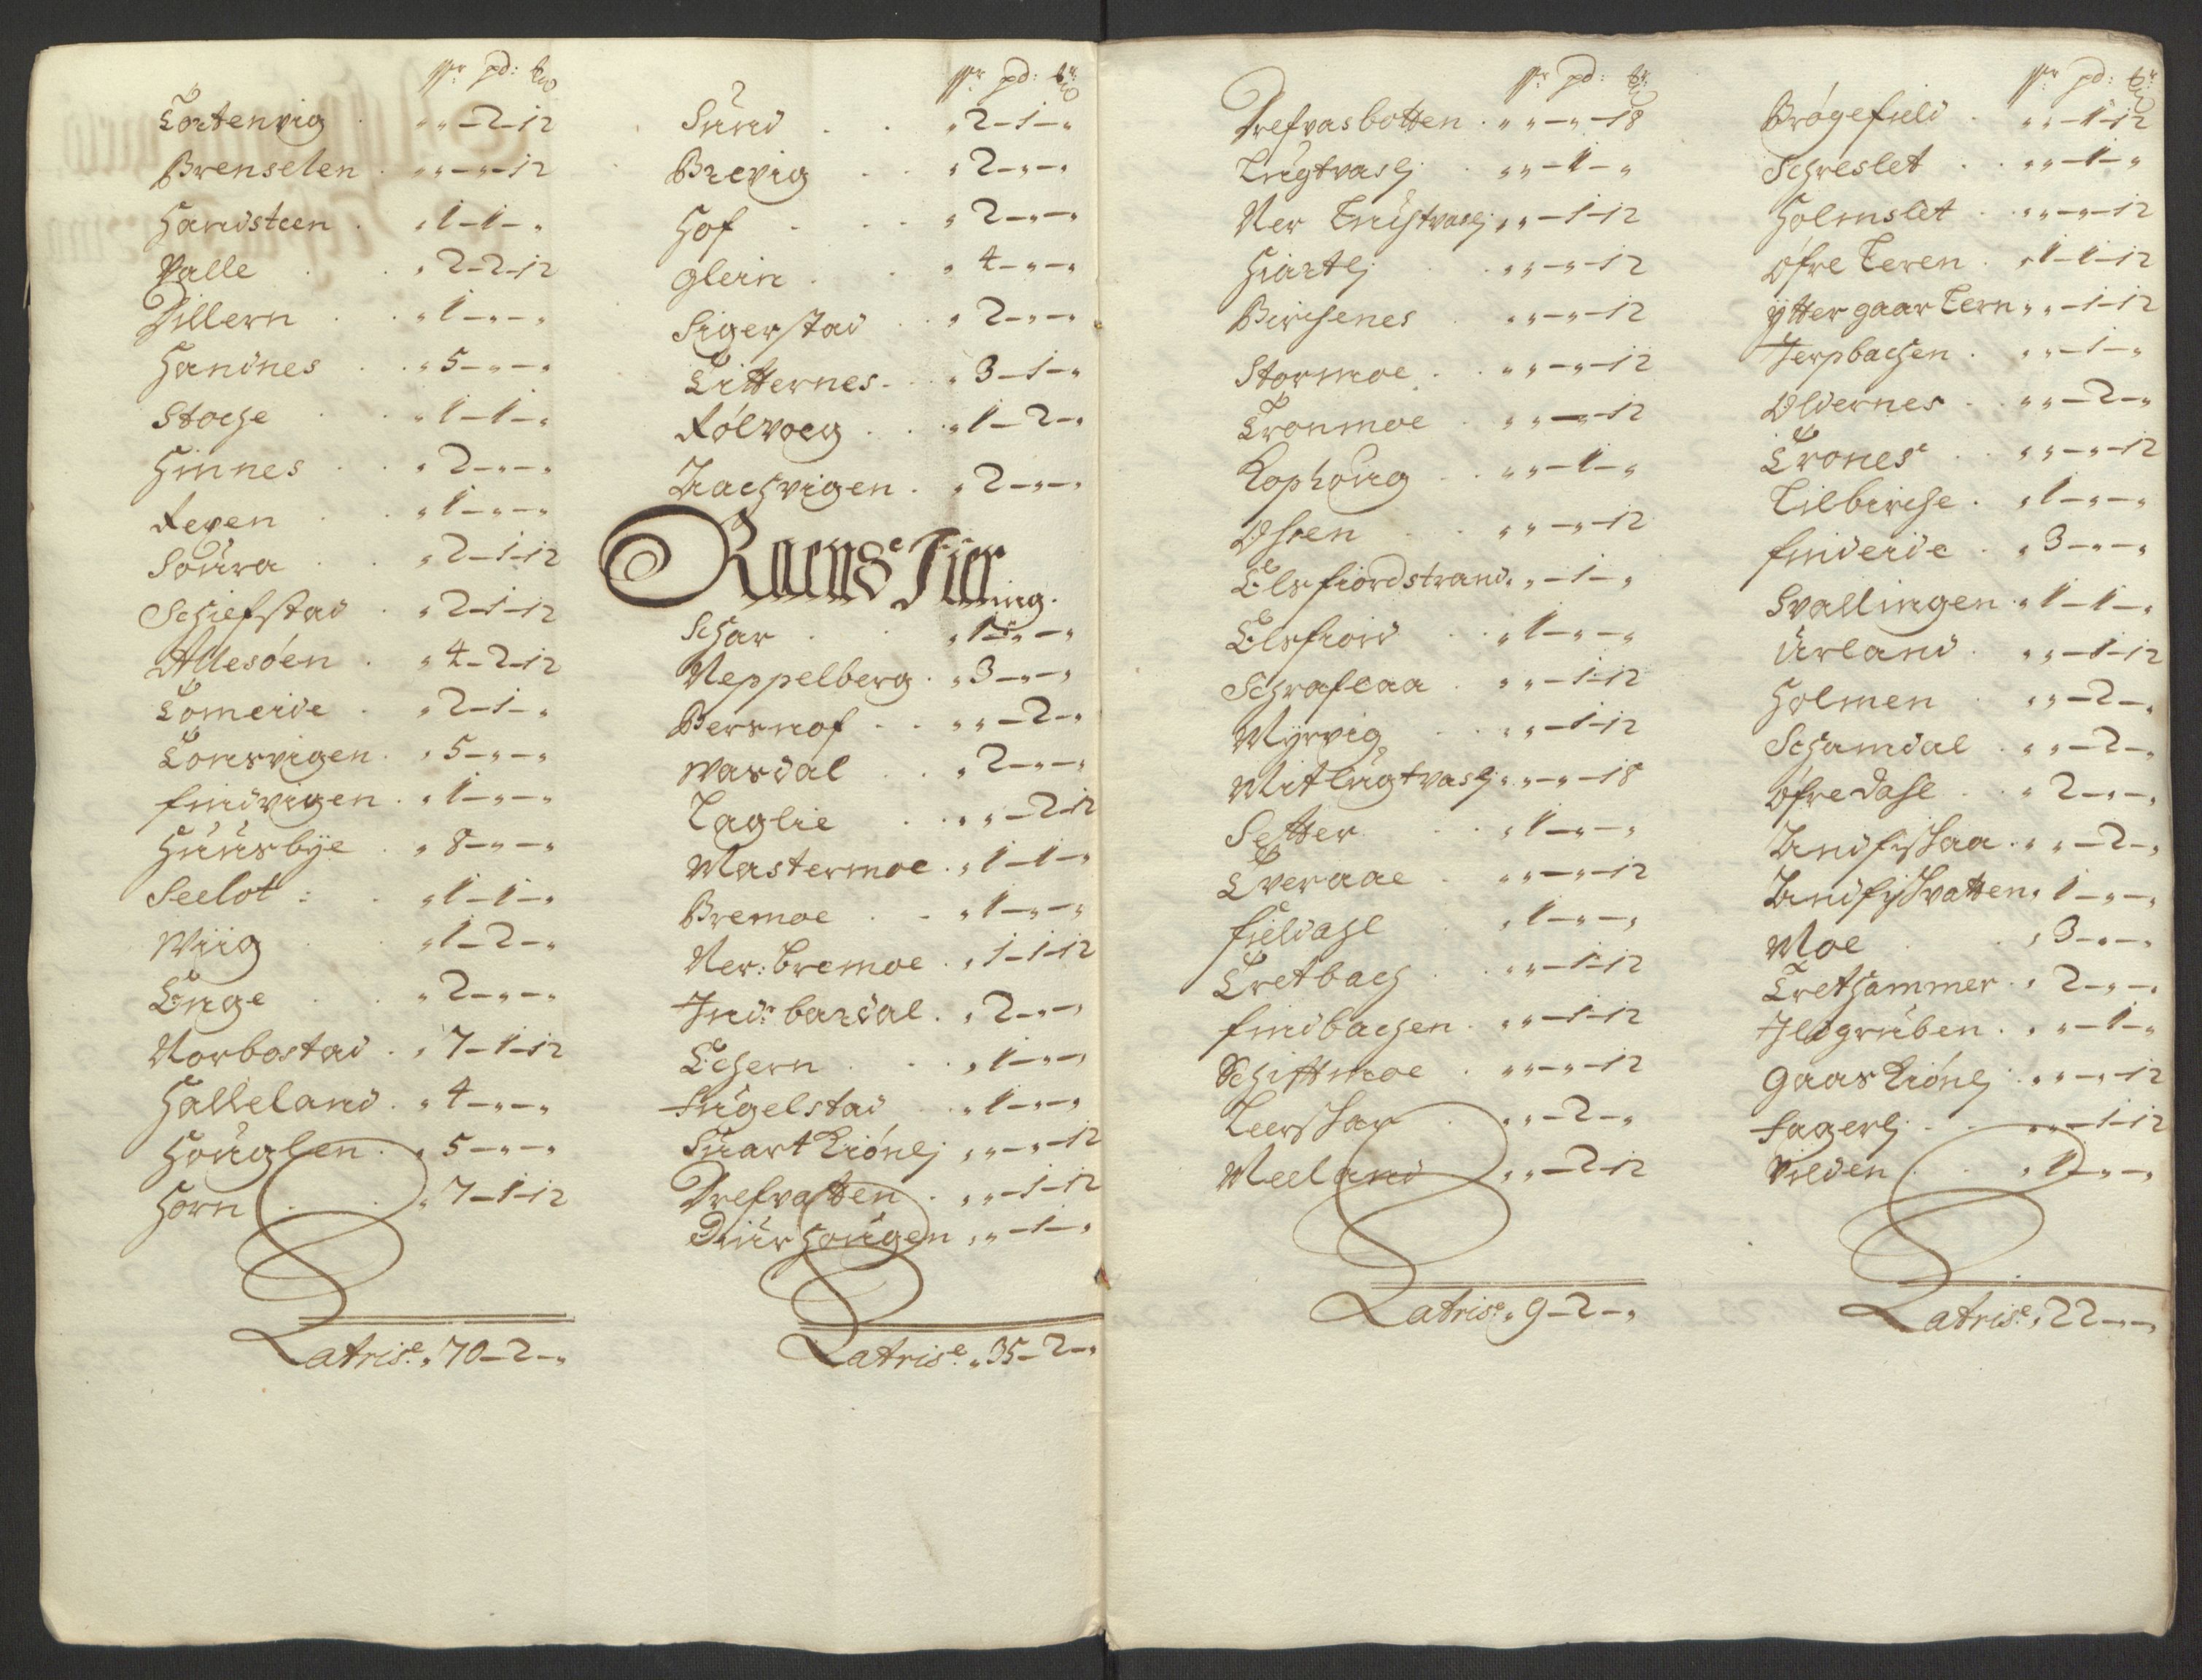 pd:
Tortenvig . „ „ – 2 – 12
Brenselen . „ „ – „ – 12
Handsteen . „ 1 – 1 – „
Valle . . „ 2 – 2 – 12
Dillern . . „ 1 – „ – „
Handnes . . „ 5 – „ – „
Stoche . . „ 1 – 1 – „
Hinnes . . „ 2 – „ – „
Reven . . „ 1 – „ – „
Soura . . „ 2 – 1 – 12
Schiefstad . „ 2 – 1 – 12
Allesöen . „ 4 – 2 – 12
Tomeide . „ 2 – 1 – „
Tomsvigen . „ 5 – „ – „
findvigen . „ 1 – „ – „
Huusbÿe . „ 8 – „ – „
Seelot : . „ 1 – 1 – „
Wiig . . „ 1 – 2 – „
Enge . . „ 2 – „ – „
Norbostad . „ 7 – 1 – 12
Halleland . „ 4 – „ – „
Houglen . „ 5 – „ – „
Horn . . „ 7 – 1 – 12
Latris:e „ 70 – 2 – „
pd:
Sund . . „ 2 – 1 – „
Brevig . . „ 2 – „ – „
Hof . . . „ 2 – „ – „
Glein . . „ 4 – „ – „
Sigerstad . „ 2 – „ – „
Titternes . . „ 3 – 1 – „
Rölvoeg . . „ 1 – 2 – „
Zachvigen . „ 2 – „ – „
Raens Fiering.
Schar . . „ 1 – „ – „
Neppelberg . „ 3 – „ – „
Bersnof . . „ „ – 2 – „
Wasdal . . „ 2 – „ – „
Laglie . . „ „ – 2 – 12
Mastermoe . „ 1 – 1 – „
Bremoe . . „ 1 – „ – „
Ner: bremoe . „ 1 – 1 – 12
Ind:r bardal . „ 2 – „ – „
Echern . . „ 1 – „ – „
Fugelstad . „ 1 – „ – „
Suart Kiönlj „ „ – „ – 12
Drefvatten . „ „ – 1 – 12
Diur Hougen „ „ – 1 – „
Latris:e „ 35 – 2 – „
pd:
Drefvasbotten . „ „ – „ – 18
Lugtvaslj . „ „ – 1 – „
Ner Lugtvaslj „ „ – 1 – 12
Hiartlj . „ „ – „ – 12
Birchenes . „ „ – „ – 12
Stormoe . „ „ – „ – 12
Tronmoe . „ „ – „ – 12
Kophoug . . „ „ – 1 – „
Osen . . „ „ – „ – 12
Elsfiordstrand „ „ – 1 – „
Elsfiord . . „ 1 – „ – „
Schraflaa . „ „ – 1 – 12
Myrvig . . „ „ – 1 – 12
Mitlugtvaslj „ „ – „ – 18
Setter . . „ 1 – „ – „
Tveraae . „ „ – „ – 12
fieldahl . „ 1 – „ – „
Tretbach . „ „ – 1 – 12
findbachen . „ „ – 1 – 12
Schiftmoe . „ „ – „ – 12
Leerskar . „ „ – 2 – „
Meeland „ „ – 2 – 12
Latris:e „ 9 – 2 – „
pd:
Brögefield . „ „ – 1 – 12
Schreslet . . „ „ – 1 – „
Holmslet . . „ „ – „ – 12
Öfre Teren . „ 1 – 1 – 12
ÿtter gaar Tern „ „ – 1 – 12
Jerpbachen . „ „ – 1 – „
Oldernes . . „ „ – 2 – „
Trones . . „ „ – „ – 12
Tilbirche . „ 1 – „ – „
findeide . „ 3 – „ – „
Svallingen . „ 1 – 1 – „
Urland . „ „ – 1 – 12
Holmen . „ „ – 2 – „
Schamdal . „ „ – 2 – „
Öfredahl . „ 2 – „ – „
„ „ – 2 – „
„ 1 – „ – „
Moe . . „ 3 – „ – „
Trethammer . „ 2 – „ – „
Ildgruben . „ „ – 1 – „
Gaas Kiönlj . „ „ – „ – 12
Fagerlj . . „ „ – 1 – 12
Vilden . . „ 1 – „ – „
Latris:e „ 22 – „ – „